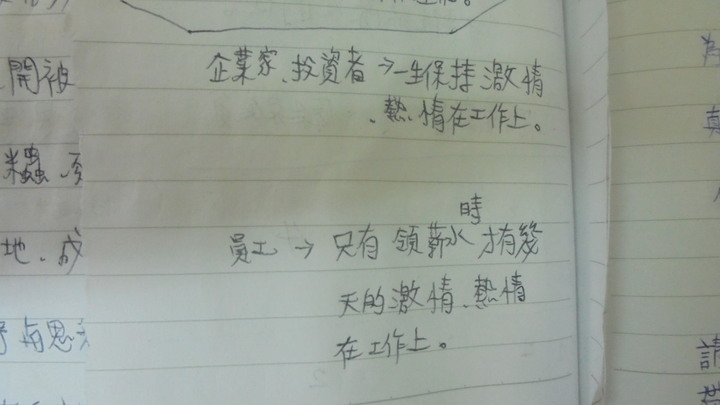 企業家、投資者→一生保持激情
、熱情在工作上。
時
員工→只有領薪水才有幾
天的激情、熱情
在工作上。
開被
地、成
請